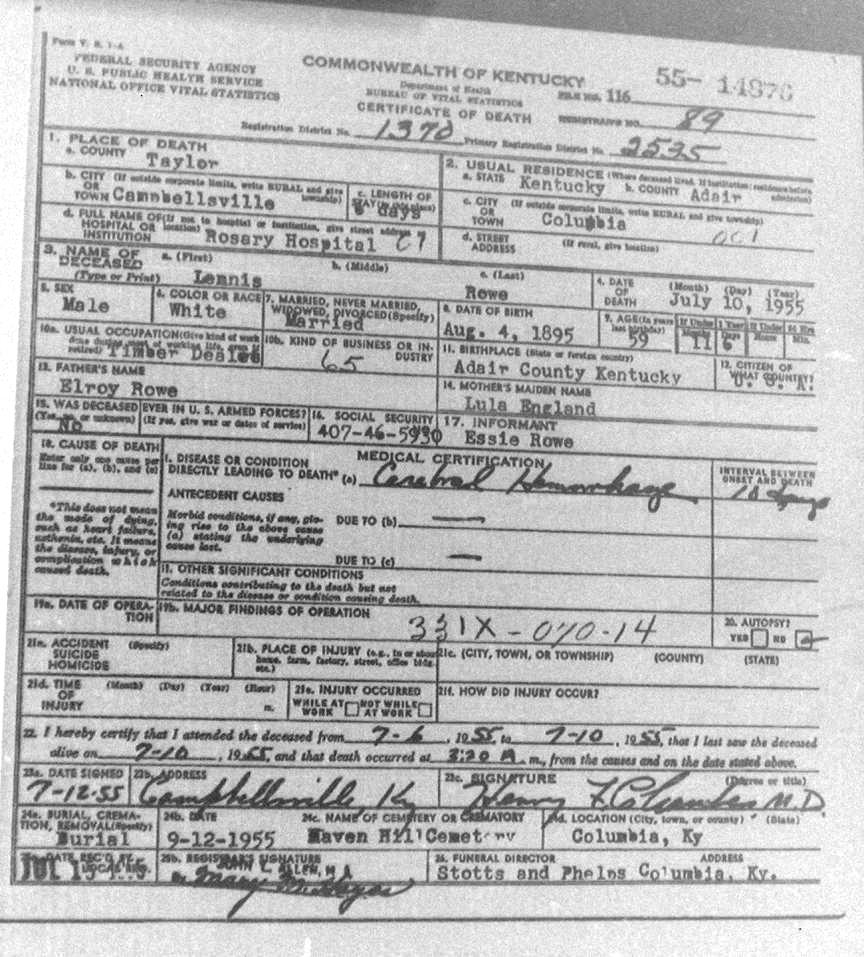 Form V. S. 1-A
FEDERAL SECURITY AGENCY
U. S. PUBLIC HEALTH SERVICE
NATIONAL OFFICE VITAL STATISTICS
COMMONWEALTH OF KENTUCKY
Department of Health
BUREAU OF VITAL STATISTICS
CERTIFICATE OF DEATH
55- 14876
FILE NO. 116
REGISTRAR'S NO. 89
Registration District No. 1370 Primary Registration District No. 2525
1. PLACE OF DEATH
a. COUNTY Taylor
b. CITY (If outside corporate limits, write RURAL and give township)
OR
TOWN Campbellsville
c. LENGTH OF
STAY (in this place)
days
d. FULL NAME OF (If not in hospital or institution, give street address or location)
HOSPITAL OR
INSTITUTION Rosary Hospital
2. USUAL RESIDENCE (Where deceased lived. If institution: residence before admission)
a. STATE Kentucky b. COUNTY Adair
c. CITY (If outside corporate limits, write RURAL and give township)
OR
TOWN Columbia 001
d. STREET
ADDRESS (If rural, give location)
3. NAME OF
DECEASED
(Type or Print)
a. (First) b. (Middle) c. (Last)
Lennis Rowe
4. DATE
OF
DEATH
(Month) (Day) (Year)
July 10, 1955
5. SEX
Male
6. COLOR OR RACE
White
7. MARRIED, NEVER MARRIED,
WIDOWED, DIVORCED (Specify)
Married
8. DATE OF BIRTH
Aug. 4, 1895
9. AGE (In years
last birthday)
59
If Under 1 Year
Months Days
11 6
If Under 24 Hrs
Hours Min.
10a. USUAL OCCUPATION (Give kind of work
done during most of working life, even if
retired) Timber Dealer
10b. KIND OF BUSINESS OR IN-
DUSTRY
65
11. BIRTHPLACE (State or foreign country)
Adair County Kentucky
12. CITIZEN OF
WHAT COUNTRY?
U. S. A.
13. FATHER'S NAME
Elroy Rowe
14. MOTHER'S MAIDEN NAME
Lula England
15. WAS DECEASED EVER IN U. S. ARMED FORCES?
(Yes, no, or unknown) (If yes, give war or dates of service)
No
16. SOCIAL SECURITY
407-46-5930
17. INFORMANT
Essie Rowe
18. CAUSE OF DEATH
Enter only one cause per
line for (a), (b), and (c)
*This does not mean
the mode of dying,
such as heart failure,
asthenia, etc. It means
the disease, injury, or
complication which
caused death.
MEDICAL CERTIFICATION
I. DISEASE OR CONDITION
DIRECTLY LEADING TO DEATH* (a) Cerebral Hemorrhage
ANTECEDENT CAUSES
Morbid conditions, if any, giv-
ing rise to the above cause
(a) stating the underlying
cause last.
DUE TO (b) —
DUE TO (c) —
II. OTHER SIGNIFICANT CONDITIONS
Conditions contributing to the death but not
related to the disease or condition causing death.
INTERVAL BETWEEN
ONSET AND DEATH
19a. DATE OF OPERA-
TION
19b. MAJOR FINDINGS OF OPERATION
331X-070-14
20. AUTOPSY?
YES NO
21a. ACCIDENT (Specify)
SUICIDE
HOMICIDE
21b. PLACE OF INJURY (e.g., in or about
home, farm, factory, street, office bldg.
etc.)
21c. (CITY, TOWN, OR TOWNSHIP) (COUNTY) (STATE)
21d. TIME (Month) (Day) (Year) (Hour)
OF
INJURY m.
21e. INJURY OCCURRED
WHILE AT NOT WHILE
WORK AT WORK
21f. HOW DID INJURY OCCUR?
22. I hereby certify that I attended the deceased from 7-6, 1955, to 7-10, 1955, that I last saw the deceased
alive on 7-10, 1955, and that death occurred at 3:20 A m., from the causes and on the date stated above.
23a. DATE SIGNED
7-12-55
23b. ADDRESS
Campbellsville, Ky
23c. SIGNATURE (Degree or title)
Henry F. M.D.
24a. BURIAL, CREMA-
TION, REMOVAL (Specify)
Burial
24b. DATE
9-12-1955
24c. NAME OF CEMETERY OR CREMATORY
Haven Hill Cemetery
24d. LOCATION (City, town, or county) (State)
Columbia, Ky
DATE REC'D BY
LOCAL REG.
25b. REGISTRAR'S SIGNATURE
Mary
26. FUNERAL DIRECTOR ADDRESS
Stotts and Phelps Columbia, Ky.